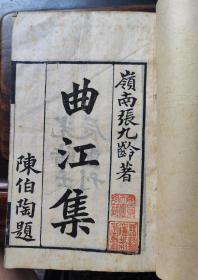 嶺南張九齡著
曲江集
陳伯陶題